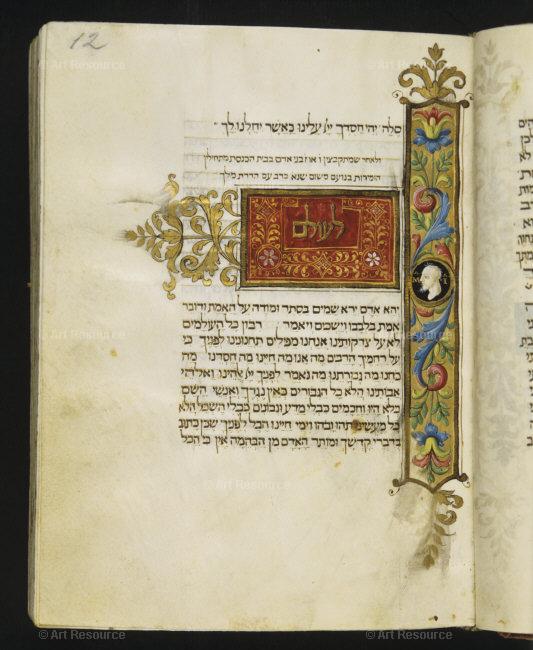 12
סלה יהי חסדך ייי עלינו כאשר יחלנו לך
ולאחר שמתקבצין ו או ז בני אדם בבית הכנסת מתחילין
הזמירות בנועם משום שנא ברב עם הדרת מלך
לעולם
יהא אדם ירא שמים בסתר ומודה על האמת ודובר
אמת בלבבו וישכים ויאמר רבון כל העולמים
לא על צדקותינו אנחנו מפילים תחנונינו לפניך כי
על רחמיך הרבים מה אנו מה חיינו מה חסדנו מה
כחנו מה גבורתנו מה נאמר לפניך ייי אלהינו ואלהי
אבותינו הלא כל הגבורים כאין נגדך ואנשי השם
כלא היו וחכמים כבלי מדע ונבונים כבלי השכל הלא
כל מעשינו תהו ובהו וימי חיינו הבל לפניך שכן כתוב
בדברי קדשך ומותר האדם מן הבהמה אין כי הכל
© Art Resource
© Art Resource